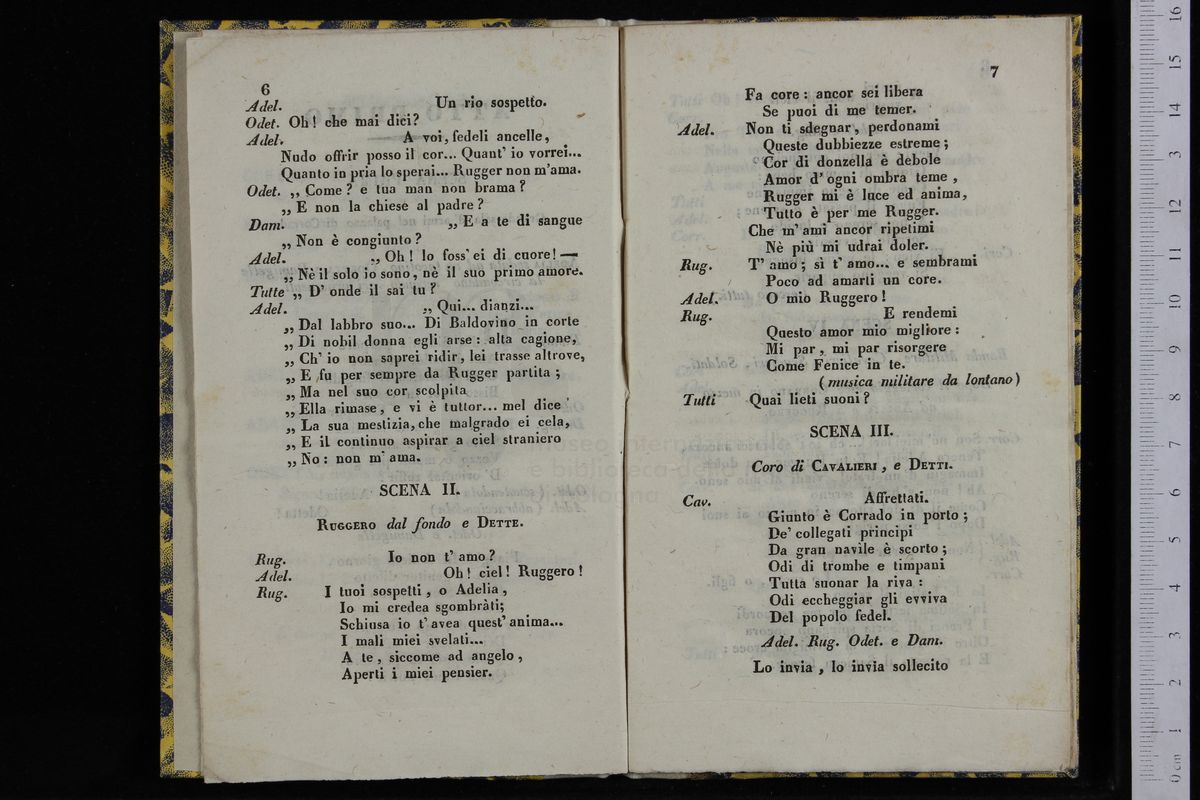 6
Adel. Un rio sospetto.
Odet. Oh! che mai dici?
Adel. A voi, fedeli ancelle,
Nudo offrir posso il cor... Quant' io vorrei...
Quanto in pria lo sperai... Rugger non m'ama.
Odet. ,, Come? e tua man non brama?
,, E non la chiese al padre?
Dam. ,, E a te di sangue
,, Non è congiunto?
Adel. ,, Oh! lo foss' ei di cuore! —
,, Nè il solo io sono, nè il suo primo amore.
Tutte ,, D' onde il sai tu?
Adel. ,, Qui... dianzi...
,, Dal labbro suo... Di Baldovino in corte
,, Di nobil donna egli arse: alta cagione,
,, Ch' io non saprei ridir, lei trasse altrove,
,, E fu per sempre da Rugger partita;
,, Ma nel suo cor scolpita
,, Ella rimase, e vi è tuttor... mel dice
,, La sua mestizia, che malgrado ei cela,
,, E il continuo aspirar a ciel straniero
,, No: non m' ama.
SCENA II.
RUGGERO dal fondo e DETTE.
Rug. Io non t' amo?
Adel. Oh! ciel! Ruggero!
Rug. I tuoi sospetti, o Adelia,
Io mi credea sgombràti;
Schiusa io t'avea quest' anima...
I mali miei svelati...
A te, siccome ad angelo,
Aperti i miei pensier.
7
Fa core: ancor sei libera
Se puoi di me temer.
Adel. Non ti sdegnar, perdonami
Queste dubbiezze estreme;
Cor di donzella è debole
Amor d' ogni ombra teme,
Rugger mi è luce ed anima,
Tutto è per me Rugger.
Che m' ami ancor ripetimi
Nè più mi udrai doler.
Rug. T' amo; sì t' amo... e sembrami
Poco ad amarti un core.
Adel. O mio Ruggero!
Rug. E rendemi
Questo amor mio migliore:
Mi par, mi par risorgere
Come Fenice in te.
(musica militare da lontano)
Tutti Quai lieti suoni?
SCENA III.
Coro di CAVALIERI, e DETTI.
Cav. Affrettati.
Giunto è Corrado in porto;
De' collegati principi
Da gran navile è scorto;
Odi di trombe e timpani
Tutta suonar la riva:
Odi eccheggiar gli evviva
Del popolo fedel.
Adel. Rug. Odet. e Dam.
Lo invia, lo invia sollecito